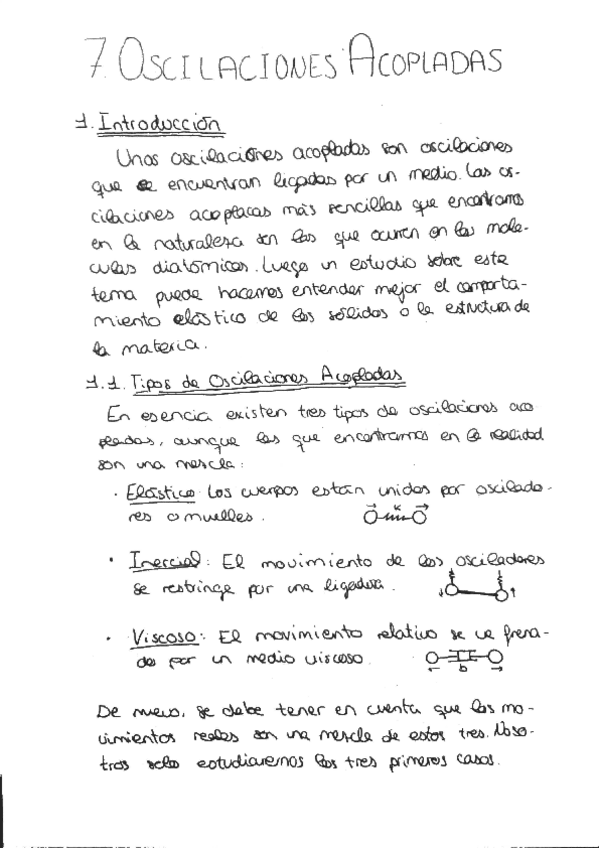 7. OSCILACIONES ACOPLADAS
1. Introducción
Unas oscilaciones acopladas son oscilaciones
que se encuentran ligadas por un medio. Las os-
cilaciones acopladas más sencillas que encontramos
en la naturaleza son las que ocurren en las molé-
culas diatómicas. Luego un estudio sobre este
tema puede hacernos entender mejor el comporta-
miento elástico de los sólidos o la estructura de
la materia.
1.1. Tipos de Oscilaciones Acopladas
En esencia existen tres tipos de oscilaciones aco
pladas, aunque las que encontramos en la realidad
son una mezcla:
· Elástico: Los cuerpos están unidos por oscilado-
res o muelles.
k
· Inercial: El movimiento de los osciladores
se restringe por una ligadura.
· Viscoso: El movimiento relativo se ve frena-
do por un medio viscoso.
b
De nuevo, se debe tener en cuenta que los mo-
vimientos reales son una mezcla de estos tres. Noso-
tros solo estudiaremos los tres primeros casos.